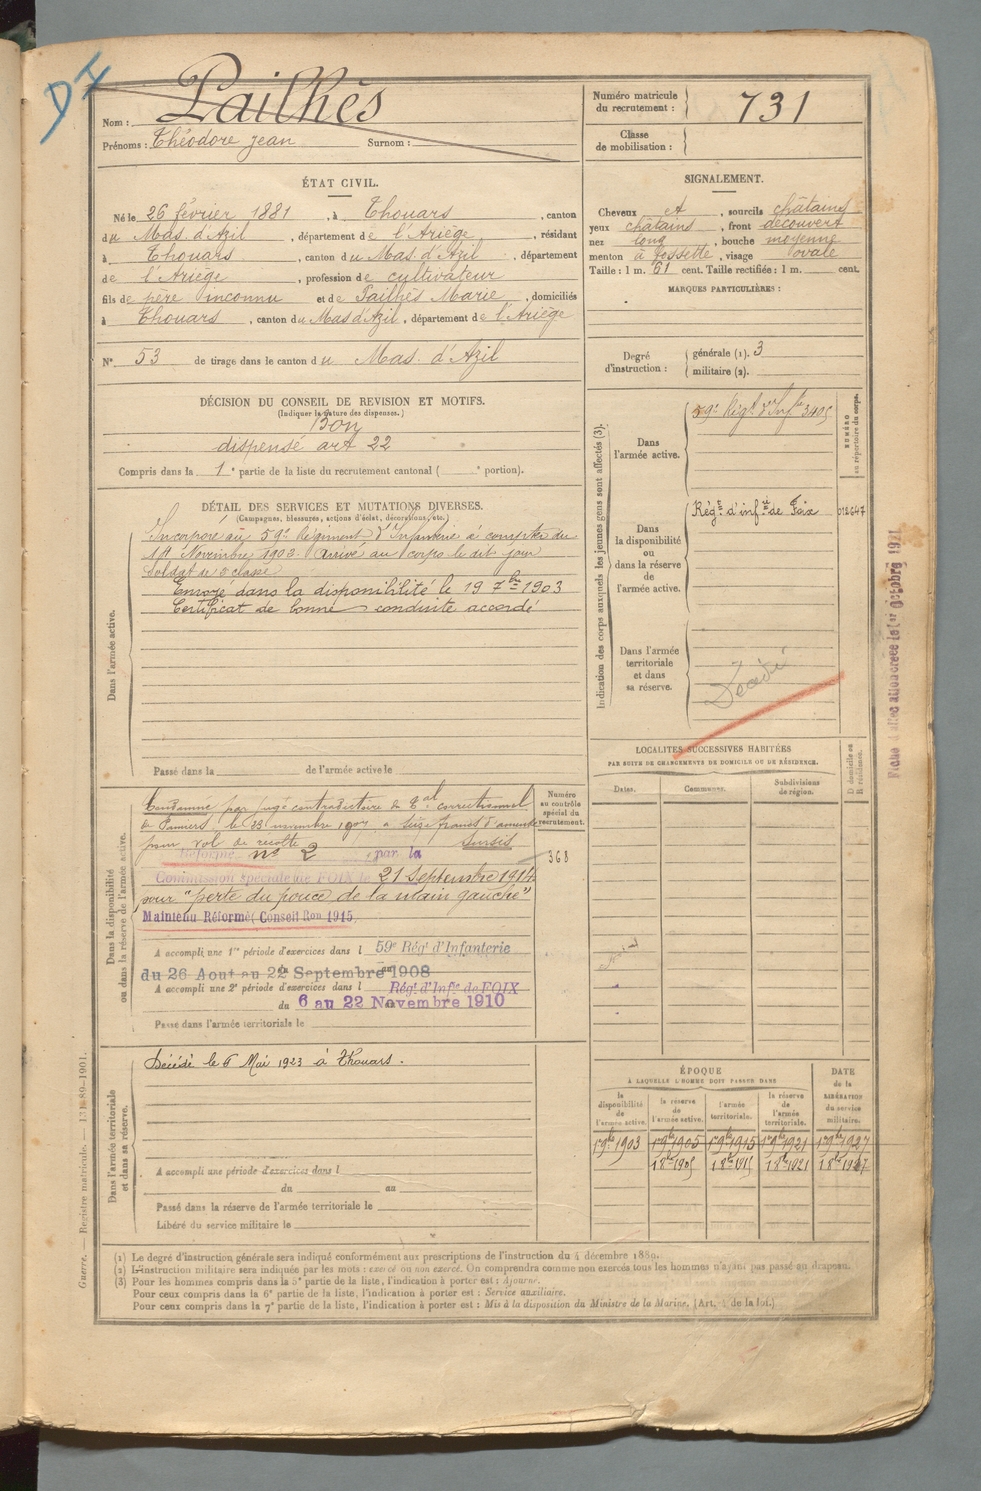 DI
Nom : Pailhès
Prénoms : Théodore Jean Surnom :
Numéro matricule du recrutement : 731
Classe de mobilisation :
ÉTAT CIVIL.
Né le 26 février 1881, à Thouars, canton
du Mas d'Azil, département de l'Ariège, résidant
à Thouars, canton du Mas d'Azil, département
de l'Ariège, profession de cultivateur
fils de père inconnu et de Pailhès Marie, domiciliés
à Thouars, canton du Mas d'Azil, département de l'Ariège
N° 53 de tirage dans le canton du Mas d'Azil
SIGNALEMENT.
Cheveux et, sourcils châtains
yeux châtains, front découvert
nez long, bouche moyenne
menton à fossette, visage ovale
Taille : 1 m. 61 cent. Taille rectifiée : 1 m. cent.
MARQUES PARTICULIÈRES :
Degré d'instruction : générale (1). 3
militaire (2).
DÉCISION DU CONSEIL DE REVISION ET MOTIFS.
(Indiquer la nature des dispenses.)
Bon
dispensé art 22
Compris dans la 1e partie de la liste du recrutement cantonal ( e portion).
DÉTAIL DES SERVICES ET MUTATIONS DIVERSES.
(Campagnes, blessures, actions d'éclat, décorations, etc.)
Dans l'armée active.
Incorporé au 59e Régiment d'Infanterie à compter du
Novembre 1902. Arrivé au corps le dit jour
Soldat de 2e classe
Envoyé dans la disponibilité le 19 7bre 1903
Certificat de bonne conduite accordé
Passé dans la de l'armée active le
Indication des corps auxquels les jeunes gens sont affectés (3).
NUMÉRO au répertoire du corps.
Dans l'armée active.
59e Régt d'Infie 3405
Dans la disponibilité ou dans la réserve de l'armée active.
Régt d'infie de Foix 012647
Dans l'armée territoriale et dans sa réserve.
Décédé
Fiche d'affectation créée le 1er Octobre 1921
LOCALITÉS SUCCESSIVES HABITÉES
PAR SUITE DE CHANGEMENTS DE DOMICILE OU DE RÉSIDENCE.
Dates. Communes. Subdivisions de région. D domicile ou R résidence.
Dans la disponibilité ou dans la réserve de l'armée active.
Numéro au contrôle spécial du recrutement.
368
Condamné par jugt contradictoire du Tal correctionnel
de Pamiers le 23 novembre 1907 à seize francs d'amende
pour vol de récolte Sursis
Réformé n° 2 par la
Commission spéciale de FOIX le 21 Septembre 1914
pour "perte du pouce de la main gauche"
Maintenu Réformé Conseil Ron 1915
A accompli une 1re période d'exercices dans l 59e Régt d'Infanterie
du 26 Aout au 22 Septembre 1908
A accompli une 2e période d'exercices dans l Régt d'Infie de FOIX
du 6 au 22 Novembre 1910
Passé dans l'armée territoriale le
Dans l'armée territoriale et dans sa réserve.
Décédé le 6 Mai 1923 à Thouars.
A accompli une période d'exercices dans l
du au
Passé dans la réserve de l'armée territoriale le
Libéré du service militaire le
ÉPOQUE
À LAQUELLE L'HOMME DOIT PASSER DANS
la disponibilité de l'armée active.
la réserve de l'armée active.
l'armée territoriale.
la réserve de l'armée territoriale.
DATE de la LIBÉRATION du service militaire.
1903 1905 1915 1921 1927
1 8bre 1905 1 8bre 1915 1 8bre 1921 1 8bre 1927
Guerre. — Registre matricule. — 1901.
(1) Le degré d'instruction générale sera indiqué conformément aux prescriptions de l'instruction du 4 décembre 1889.
(2) L'instruction militaire sera indiquée par les mots : exercé ou non exercé. On comprendra comme non exercés tous les hommes n'ayant pas passé au drapeau.
(3) Pour les hommes compris dans la 5e partie de la liste, l'indication à porter est : Ajourné.
Pour ceux compris dans la 6e partie de la liste, l'indication à porter est : Service auxiliaire.
Pour ceux compris dans la 7e partie de la liste, l'indication à porter est : Mis à la disposition du Ministre de la Marine. (Art. 4 de la loi.)